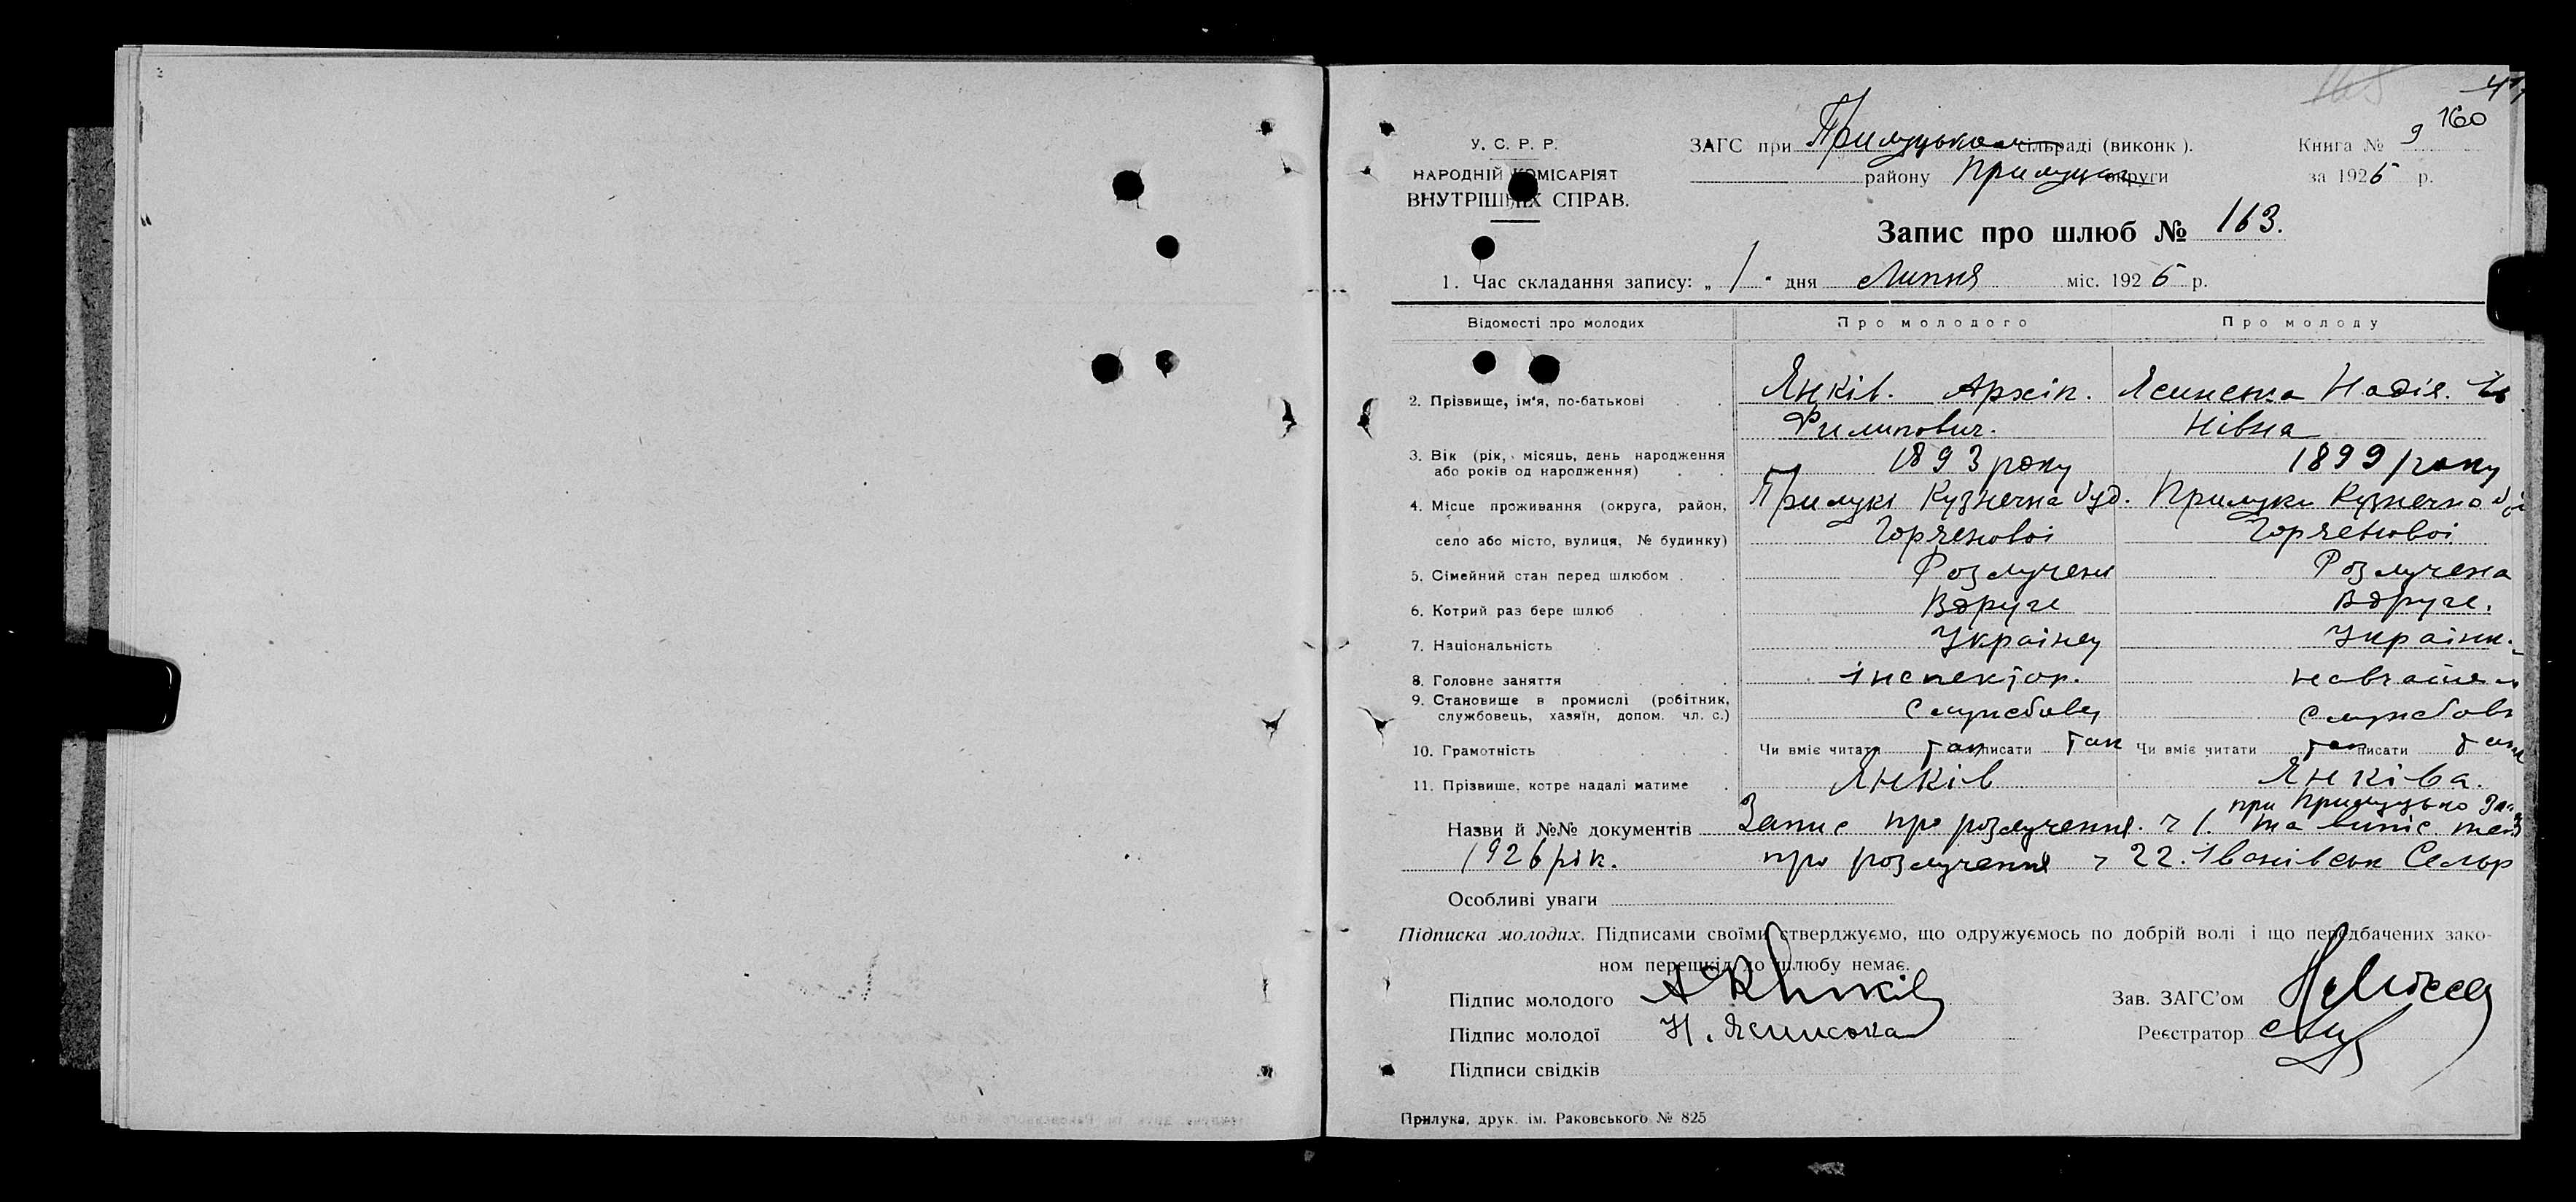 160
У. С. Р. Р.
НАРОДНІЙ КОМІСАРІЯТ
ВНУТРІШНІХ СПРАВ.
ЗАГС при Прилуцьком сільраді (виконк ).
району Прилуцької округи
Книга № 9
за 1926 р.
Запис про шлюб № 163.
1. Час складання запису: „ 1 " дня Липня міс. 1926 р.
Відомості про молодих Про молодого Про молоду
2. Прізвище, ім'я, по-батькові Янків. Архіп. Ясинська Надія. Ів
Филипович. нівна
3. Вік (рік, місяць, день народження
або років од народження) 1893 року 1899 року
4. Місце проживання (округа, район, Прилукі Кузнечна буд. Прилуки Кузнечна
село або місто, вулиця, № будинку) Горченової Горченової
5. Сімейний стан перед шлюбом Розлучени Розлучена
6. Котрий раз бере шлюб Вдруге Вдруге.
7. Національність Українец Українк.
8. Головне заняття інспектор.
9. Становище в промислі (робітник,
службовець, хазяїн, допом. чл. с.) Службовец Службов
10. Грамотність Чи вміє читати так писати так Чи вміє читати так писати так
11. Прізвище, котре надалі матиме Янків Янківа.
при Прилуцько
Назви й №№ документів Запис про розлучення ч 1. та випис
1926 рік. про розлучення ч 22. Іванівськ Сельр
Особливі уваги
Підписка молодих. Підписами своїми стверджуємо, що одружуємось по добрій волі і що передбачених зако-
ном перешкід до шлюбу немає.
Підпис молодого А Янків Зав. ЗАГС'ом
Підпис молодої Н. Ясинська Реєстратор
Підписи свідків
Прилука, друк. ім. Раковського № 825